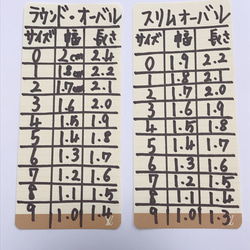 ラウンド・オーバル
サイズ 幅 長さ
0 2cm 2.4
1 1.8cm 2.2
2 1.7cm 2.1
3 1.6 2.0
4 1.5 1.9
5 1.4 1.8
6 1.3 1.7
7 1.2 1.6
8 1.1 1.5
9 1.0 1.4
スリムオーバル
サイズ 幅 長さ
0 1.9 2.2
1 1.8 2.1
2 1.7 2.0
3 1.6 1.9
4 1.5 1.8
5 1.4 1.7
6 1.3 1.6
7 1.2 1.5
8 1.1 1.4
9 1.0 1.3